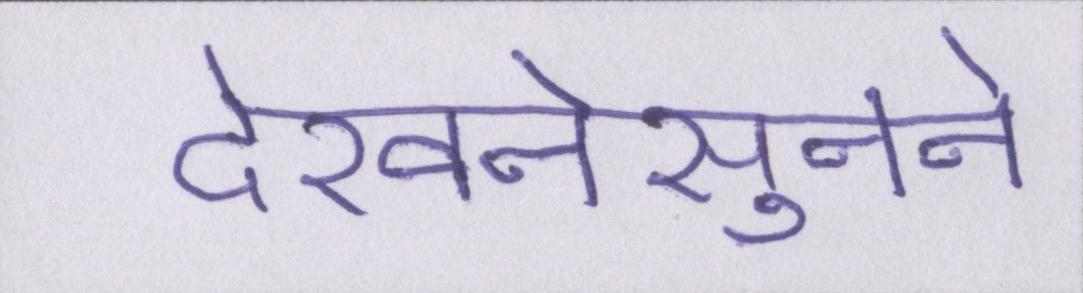 देखनेसुनने